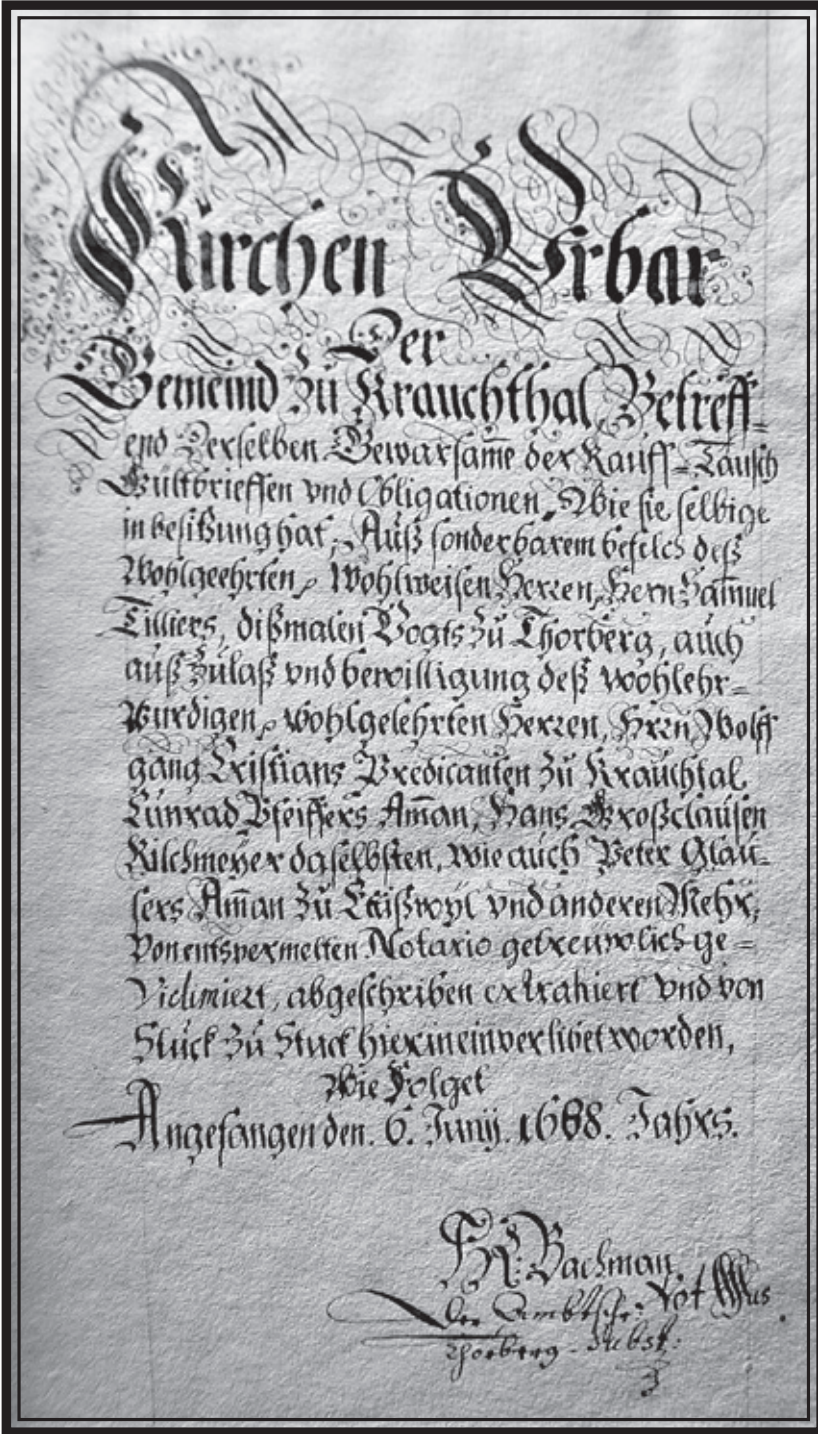 Kirchen Vrbar
Der
Gemeind zů Krauchthal, Betreff=
end Derselben Gewarsam̅e der Kauff= Tausch
Gültbrieffen vnd Obligationen, Wie sie selbige
in besitzung hat, Auß sonderbarem befelch deß
Wohlgeehrten, Wohlweisen Herren, Hern Sam̅uel
Tilliers, dißmalen Vogts zů Thorberg, auch
auß zůlaß vnd bewilligung deß wohlehr=
würdigen, wohlgelehrten Herren, Hrrn Wolff
gang Cristians Predicanten zů Krauchtal,
Cůnrad Pfeiffers Am̅an, Hans Großclausen
Kilchmeyer daselbsten, wie auch Peter Glau=
sers Am̅an zů und anderen Mehr,
Von entsvermelten Notario getreuwlich ge=
Vidimiert, abgeschriben extrahiert vnd von
Stuck zů Stuck hierin einverlibet worden,
Wie Folget
Angefangen den. 6. Junij. 1688. Jahrs.
Bachman Not
Der Ambtschr:
Thorberg Subst: